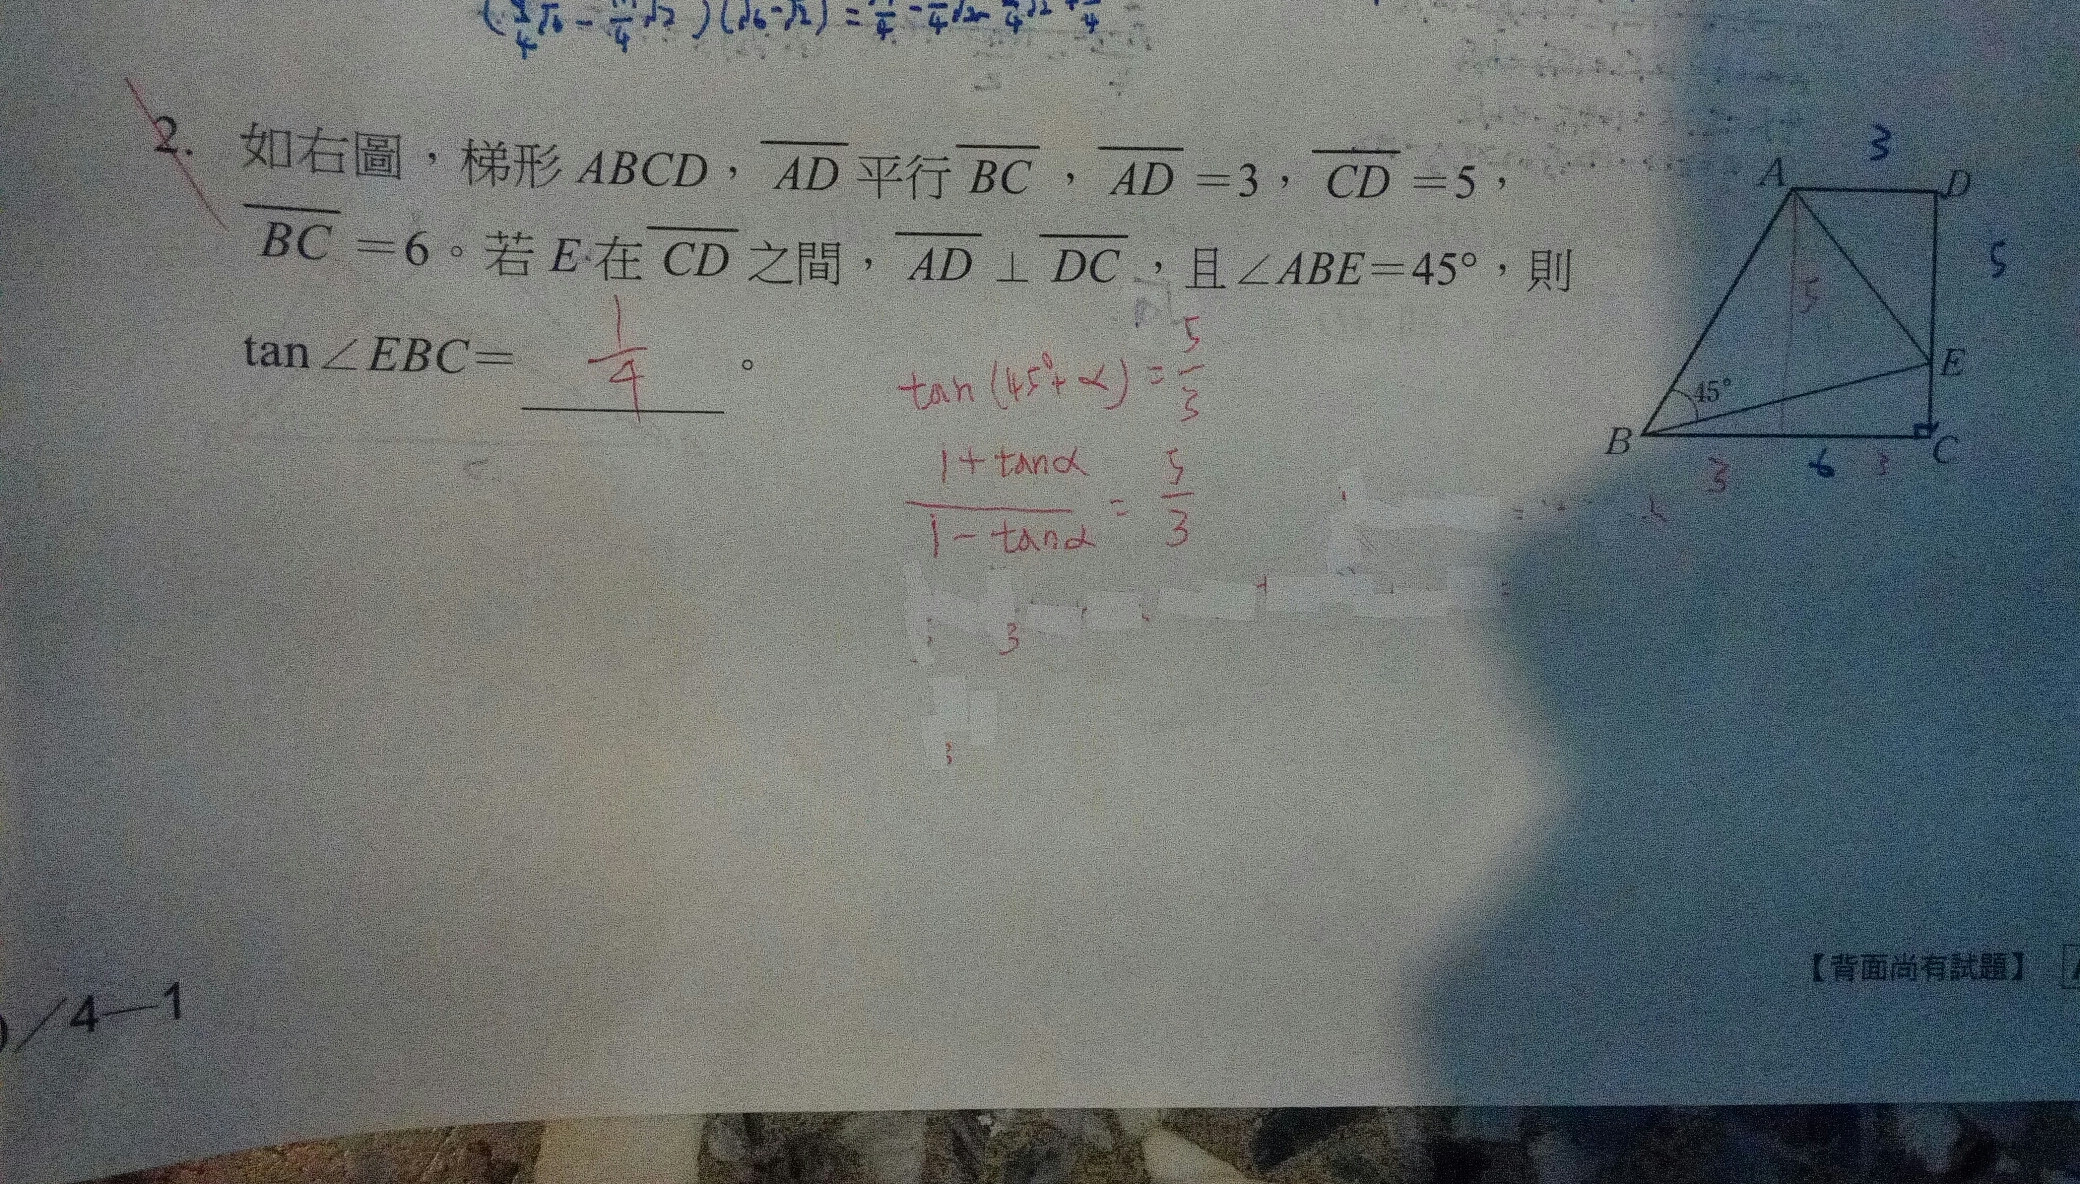 2. 如右圖,梯形 ABCD, AD 平行 BC , AD =3, CD =5,
BC =6。若 E 在 CD 之間, AD ⊥ DC ,且∠ABE=45°,則
tan∠EBC= 1/4 。
tan(45°+α) = 5/3
1+tanα / 1-tanα = 5/3
3
3
A D
5
5
E
45°
B C
3 6 3
3
【背面尚有試題】
/4—1